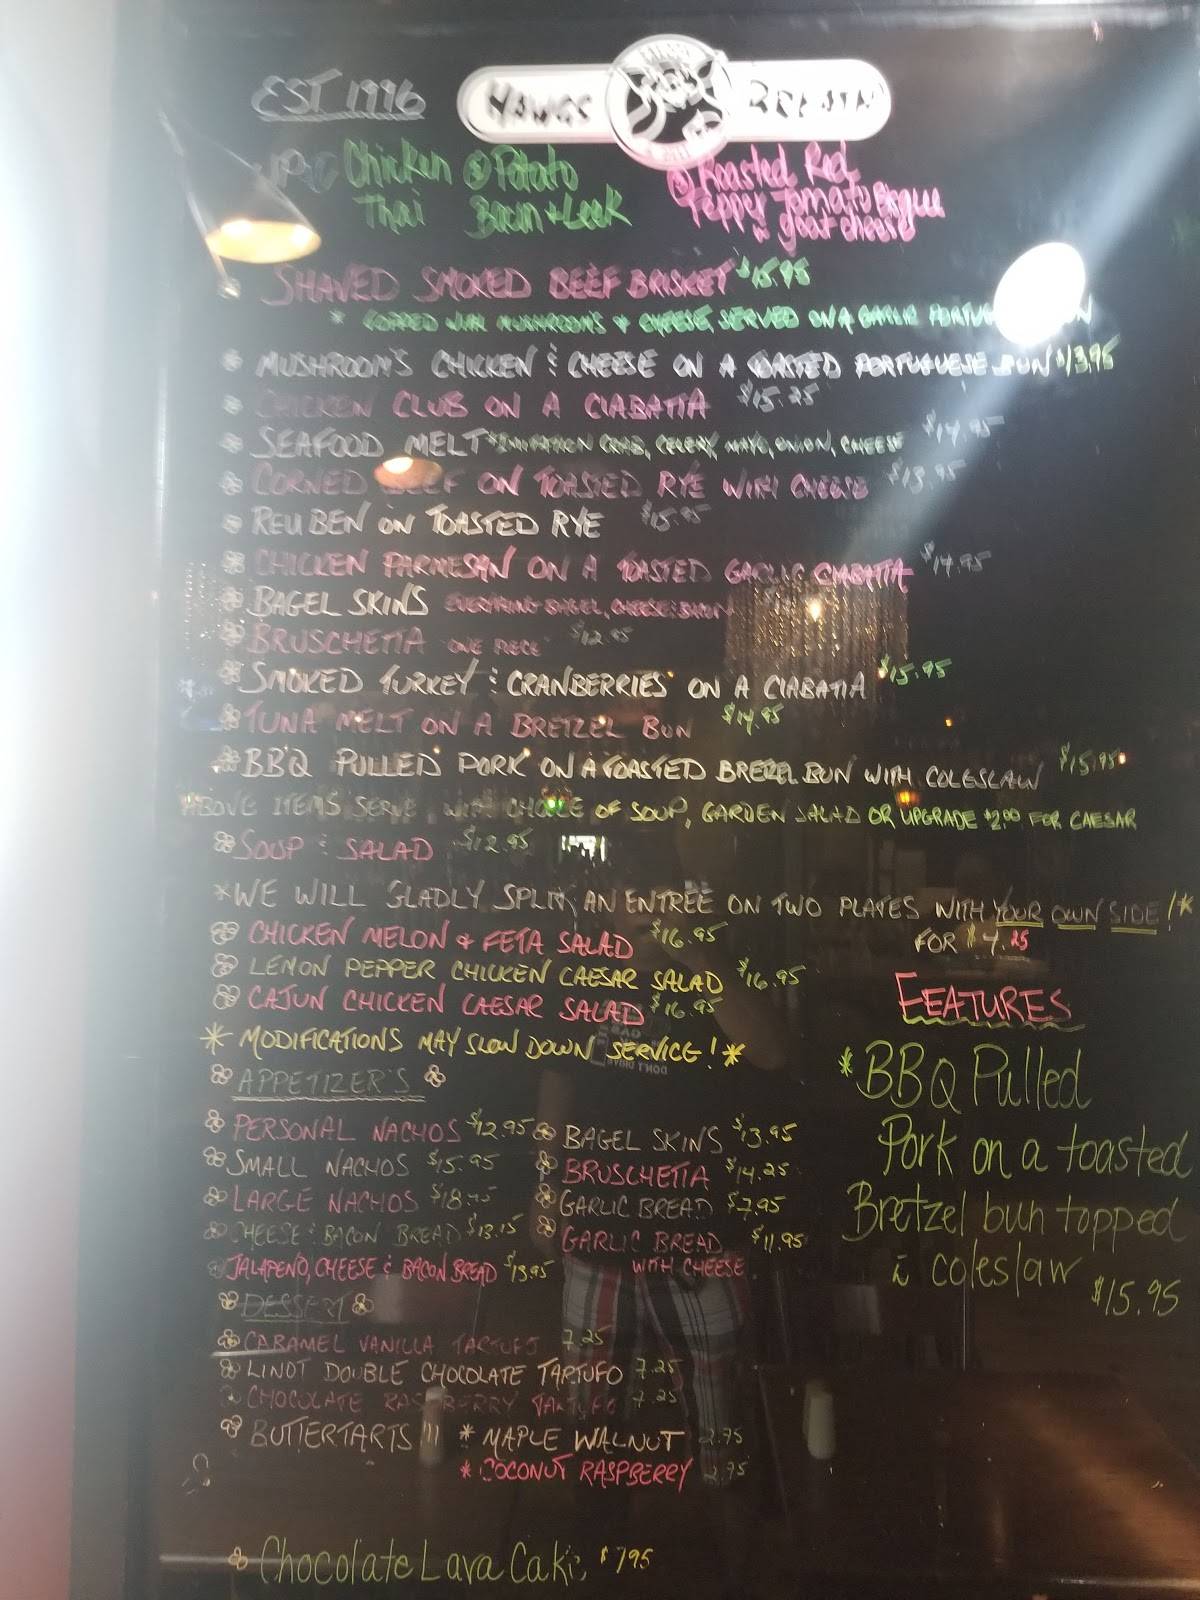 EST 1996
HAWGS BREATH
Chicken Thai
Potato Bacon + Leek
Roasted Red Pepper Tomato Bisque
goat cheese
SHAVED SMOKED BEEF BRISKET $15.95
* TOPPED WITH MUSHROOM'S + CHEESE, SERVED ON A GARLIC
* MUSHROOM'S CHICKEN & CHEESE ON A TOASTED PORTUGUESE BUN $13.95
CHICKEN CLUB ON A CIABATTA $15.25
SEAFOOD MELT *IMITATION CRAB, CELERY, MAYO, ONION, CHEESE $14.95
CORNED BEEF ON TOASTED RYE WITH CHEESE $13.95
REUBEN ON TOASTED RYE $15.95
CHICKEN PARMESAN ON A TOASTED GARLIC CIABATTA $14.95
BAGEL SKINS EVERYTHING BAGEL, CHEESE & BACON
BRUSCHETTA ONE PIECE $12.95
SMOKED TURKEY & CRANBERRIES ON A CIABATTA $15.95
TUNA MELT ON A BRETZEL BUN $14.95
BBQ PULLED PORK ON A TOASTED BRETZEL BUN WITH COLESLAW $15.95
ABOVE ITEMS SERVE WITH CHOICE OF SOUP, GARDEN SALAD OR UPGRADE $2.00 FOR CAESAR
SOUP & SALAD $12.95
*WE WILL GLADLY SPLIT AN ENTRÉE ON TWO PLATES WITH YOUR OWN SIDE!*
FOR $4.25
CHICKEN MELON & FETA SALAD $16.95
LEMON PEPPER CHICKEN CAESAR SALAD $16.95
CAJUN CHICKEN CAESAR SALAD $16.95
* MODIFICATIONS MAY SLOW DOWN SERVICE! *
APPETIZER'S
PERSONAL NACHOS $12.95
SMALL NACHOS $15.95
LARGE NACHOS
CHEESE & BACON BREAD
JALAPEÑO, CHEESE & BACON BREAD $13.95
BAGEL SKINS $13.95
BRUSCHETTA $14.25
GARLIC BREAD $7.95
GARLIC BREAD $11.95
WITH CHEESE
DESSERT
CARAMEL VANILLA TARTUFO 7.25
LINDT DOUBLE CHOCOLATE TARTUFO 7.25
CHOCOLATE RASPBERRY TARTUFO 7.25
BUTTERTARTS !!! * MAPLE WALNUT 2.75
* COCONUT RASPBERRY 2.75
Chocolate Lava Cake $7.95
FEATURES
* BBQ Pulled
Pork on a toasted
Bretzel bun topped
coleslaw $15.95